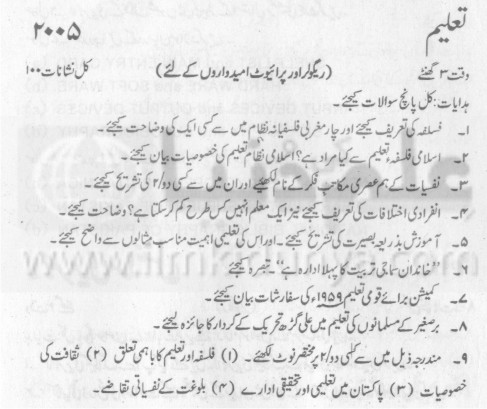 تعلیم
۲۰۰۵
وقت ۳ گھنٹے (ریگولر اور پرائیوٹ امیدواروں کے لئے) کل نشانات ۱۰۰
ہدایات: کل پانچ سوالات کیجئے۔
۱۔ فلسفہ کی تعریف کیجئے اور چار مغربی فلسفیانہ نظام میں سے کسی ایک کی وضاحت کیجئے۔
۲۔ اسلامی فلسفۂ تعلیم سے کیا مراد ہے؟ اسلامی نظام تعلیم کی خصوصیات بیان کیجئے۔
۳۔ نفسیات کے ہم عصری مکاتب فکر کے نام لکھئیے اور ان میں سے کسی دو/۲ کی تشریح کیجئے۔
۴۔ انفرادی اختلافات کی تعریف کیجئے نیز ایک معلم انہیں کس طرح کم کر سکتا ہے؟ وضاحت کیجئے۔
۵۔ آموزش بذریعہ بصیرت کی تشریح کیجئے۔ اور اس کی تعلیمی اہمیت مناسب مثالوں سے واضح کیجئے۔
۶۔ "خاندان سماجی تربیت کا پہلا ادارہ ہے" تبصرہ کیجئے
۷۔ کمیشن برائے قومی تعلیم ۱۹۵۹ء کی سفارشات بیان کیجئے۔
۸۔ برصغیر کے مسلمانوں کی تعلیم میں علی گڑھ تحریک کے کردار کا جائزہ لیجئے۔
۹۔ مندرجہ ذیل میں سے کسی دو/۲ پر مختصر نوٹ لکھئے۔ (۱) فلسفہ اور تعلیم کا باہمی تعلق (۲) ثقافت کی
خصوصیات (۳) پاکستان میں تعلیمی اور تحقیقی ادارے (۴) بلوغت کے نفسیاتی تقاضے۔